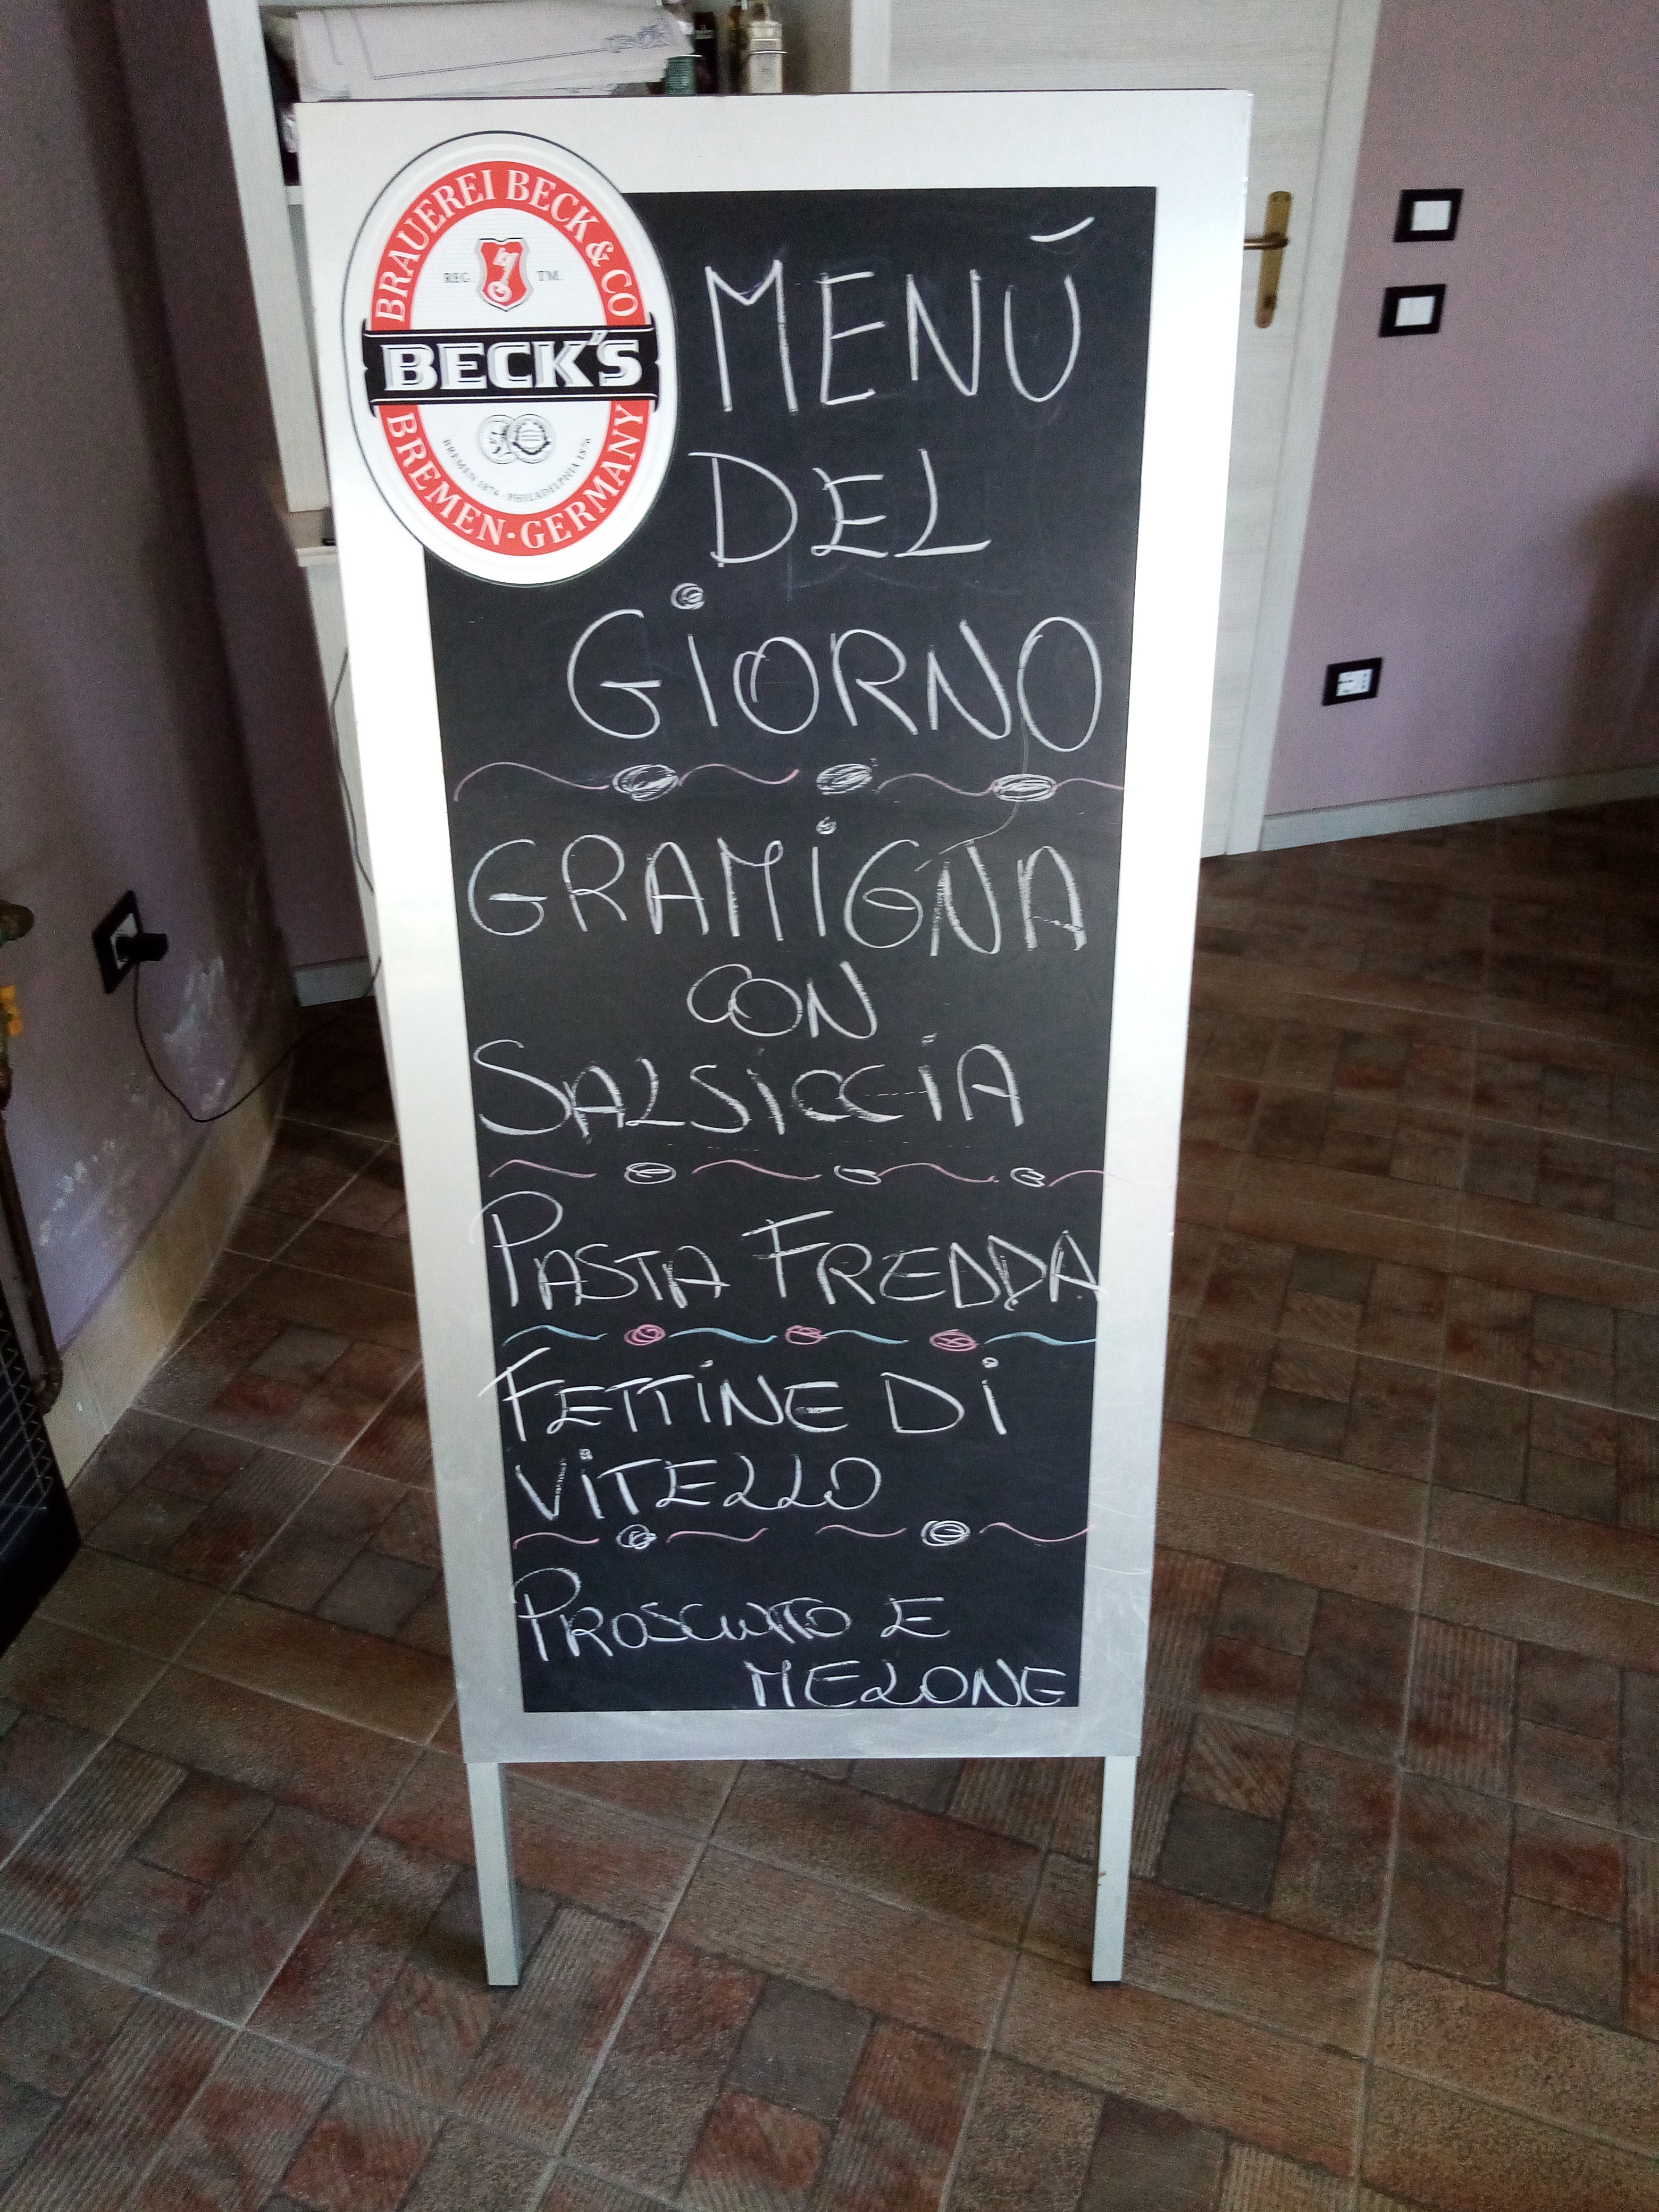 BRAUEREI BECK & CO
REG. TM.
BECK'S
BREMEN 1874 · PHILADELPHIA 1876
BREMEN·GERMANY
MENÚ
DEL
GIORNO
GRAMIGNA
CON
SALSICCIA
PASTA FREDDA
FETTINE DI
VITELLO
PROSCIUTTO E
MELONE